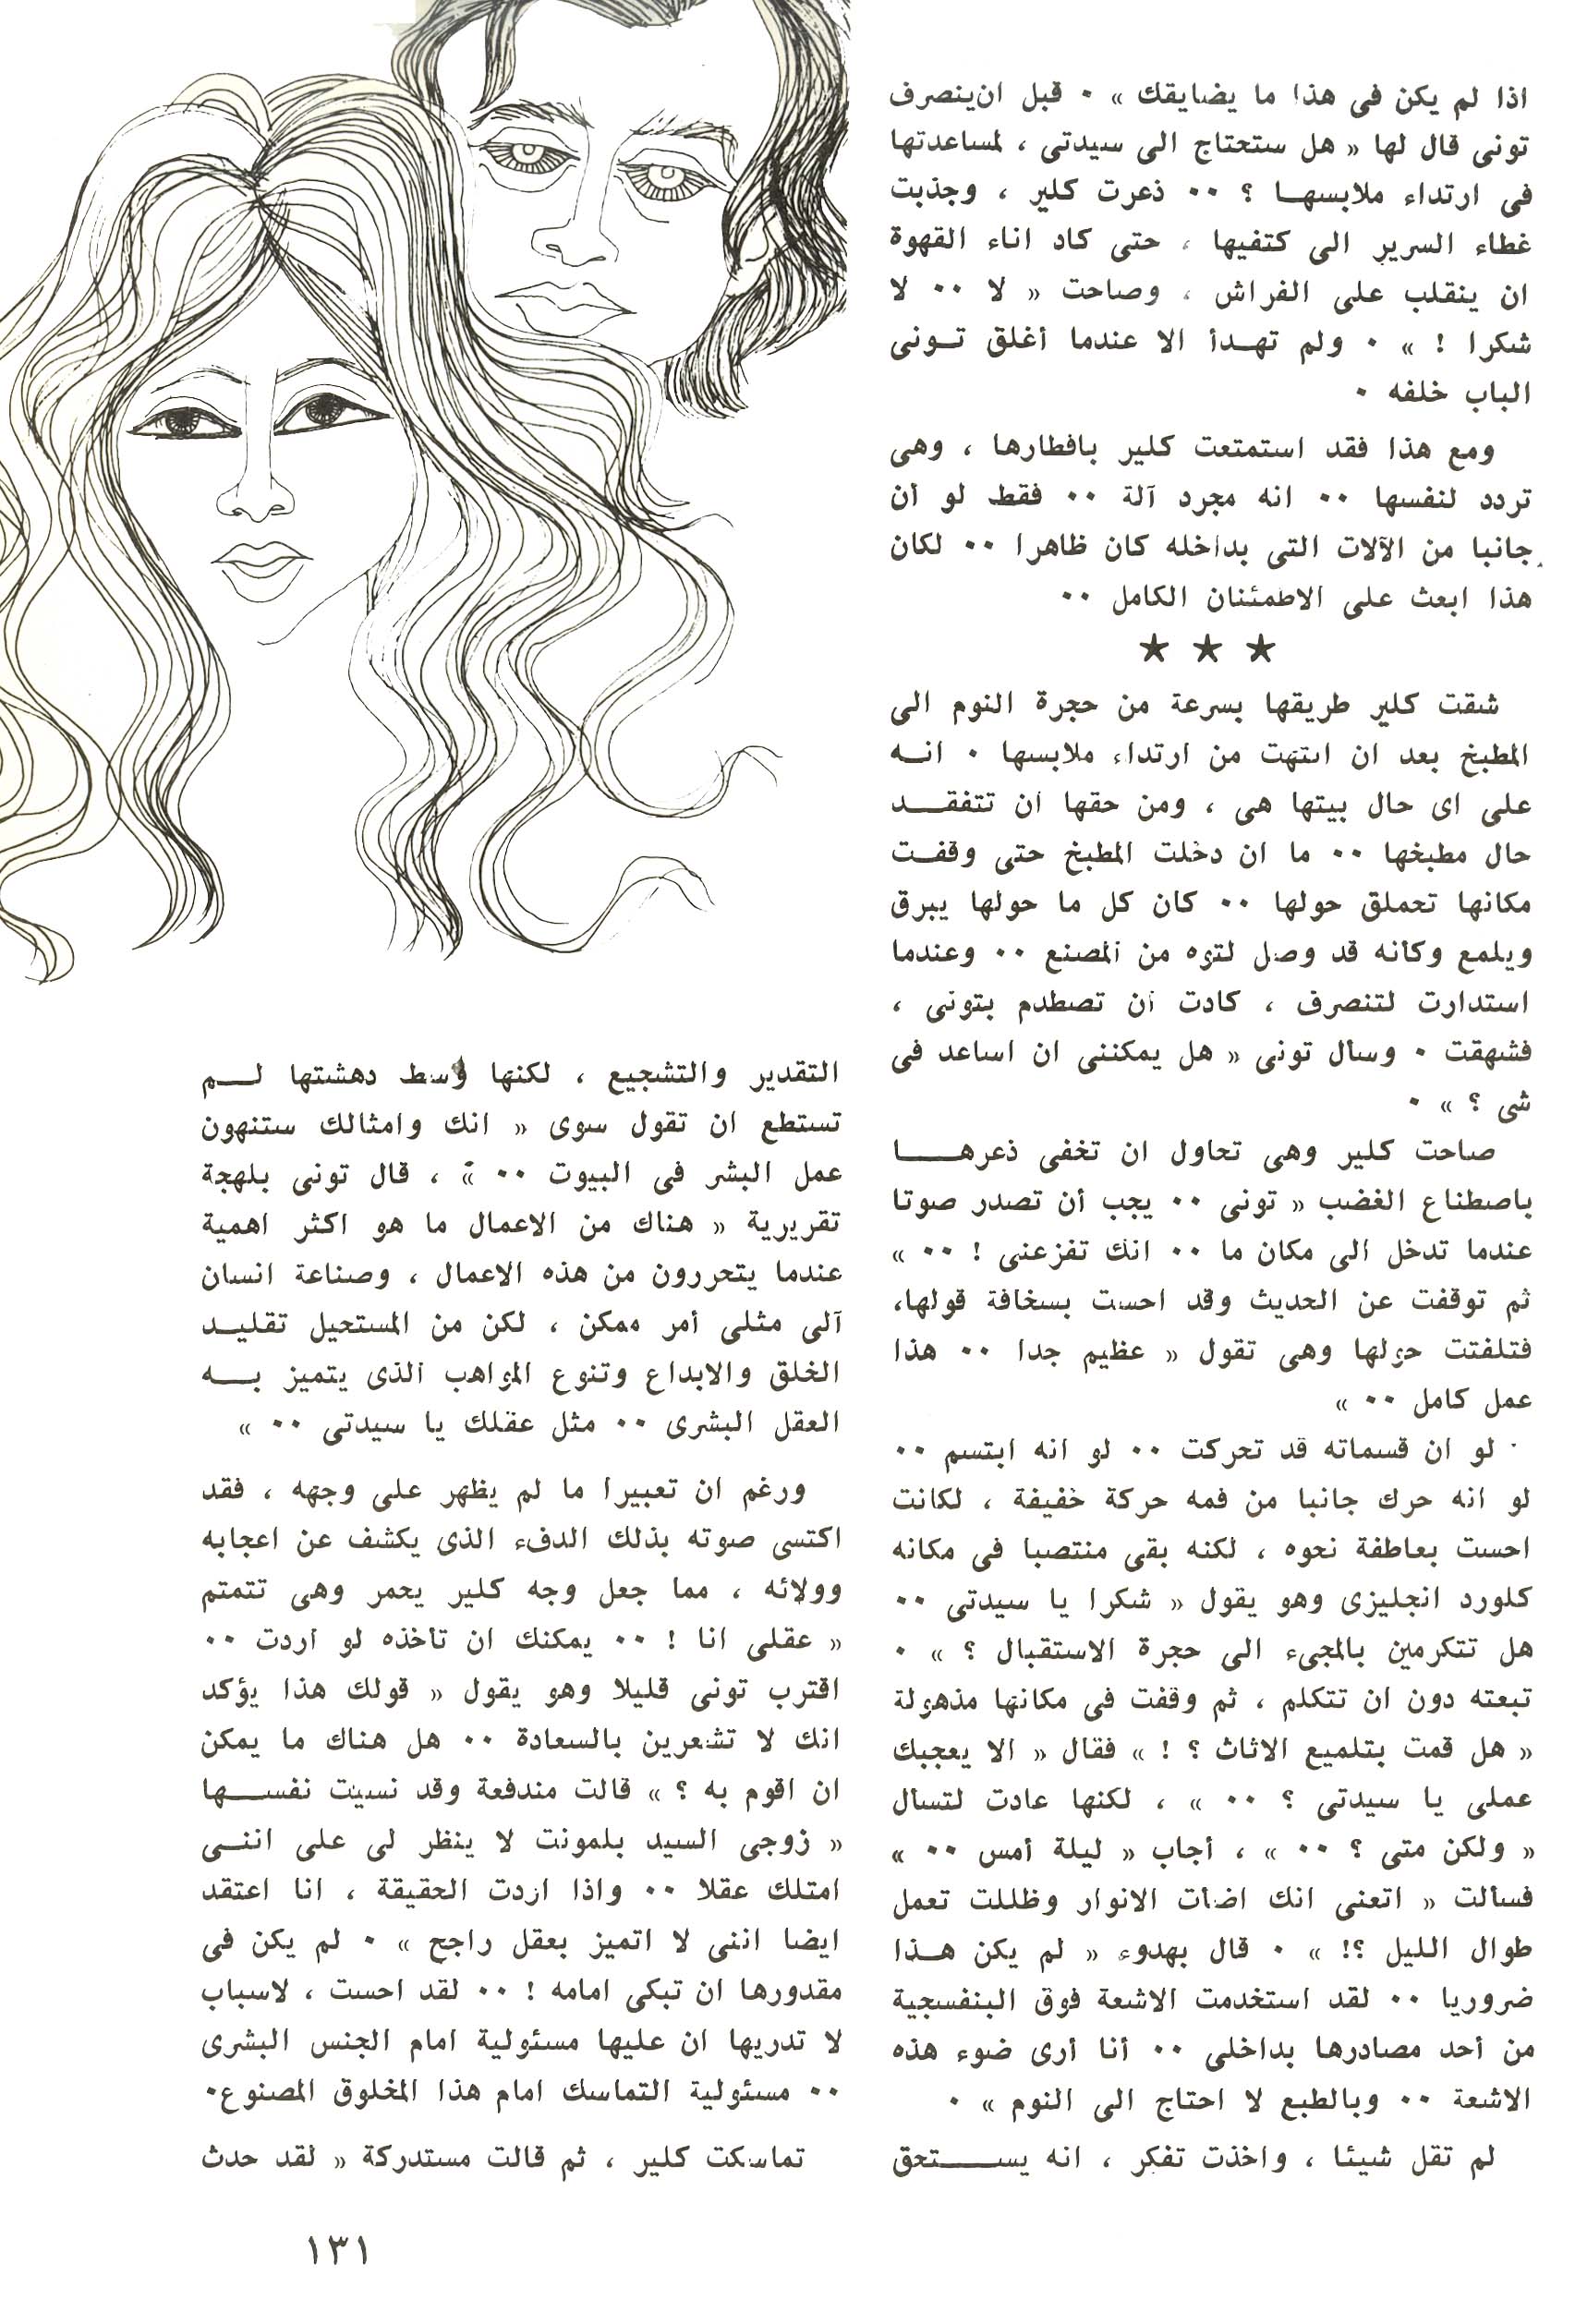 اذا لم يكن فى هذا ما يضايقك » ٠ قبل ان ينصرف
تونى قال لها « هل ستحتاج الى سيدتى ، لمساعدتها
فى ارتداء ملابسها ؟ ٠٠ ذعرت كلير ، وجذبت
غطاء السرير الى كتفيها ، حتى كاد اناء القهوة
ان ينقلب على الفراش ، وصاحت « لا ٠٠ لا
شكرا ! » ٠ ولم تهدأ الا عندما أغلق تونى
الباب خلفه ٠
ومع هذا فقد استمتعت كلير بافطارها ، وهى
تردد لنفسها ٠٠ انه مجرد آلة ٠٠ فقط لو أن
جانبا من الآلات التى بداخله كان ظاهرا ٠٠ لكان
هذا ابعث على الاطمئنان الكامل ٠٠
★ ★ ★
شقت كلير طريقها بسرعة من حجرة النوم الى
المطبخ بعد ان انتهت من ارتداء ملابسها ٠ انه
على اى حال بيتها هى ، ومن حقها أن تتفقد
حال مطبخها ٠٠ ما ان دخلت المطبخ حتى وقفت
مكانها تحملق حولها ٠٠ كان كل ما حولها يبرق
ويلمع وكأنه قد وصل لتوه من المصنع ٠٠ وعندما
استدارت لتنصرف ، كادت أن تصطدم بتونى ،
فشهقت ٠ وسأل تونى « هل يمكننى ان اساعد فى
شى ؟ » ٠
صاحت كلير وهى تحاول ان تخفى ذعرها
باصطناع الغضب « تونى ٠٠ يجب أن تصدر صوتا
عندما تدخل الى مكان ما ٠٠ انك تفزعنى ! ٠٠ »
ثم توقفت عن الحديث وقد احست بسخافة قولها،
فتلفتت حولها وهى تقول « عظيم جدا ٠٠ هذا
عمل كامل ٠٠ »
لو ان قسماته قد تحركت ٠٠ لو انه ابتسم ٠٠
لو انه حرك جانبا من فمه حركة خفيفة ، لكانت
احست بعاطفة نحوه ، لكنه بقى منتصبا فى مكانه
كلورد انجليزى وهو يقول « شكرا يا سيدتى ٠٠
هل تتكرمين بالمجىء الى حجرة الاستقبال ؟ » ٠
تبعته دون ان تتكلم ، ثم وقفت فى مكانها مذهولة
« هل قمت بتلميع الاثاث ؟ ! » فقال « الا يعجبك
عملى يا سيدتى ؟ ٠٠ » ، لكنها عادت لتسأل
« ولكن متى ؟ ٠٠ » ، أجاب « ليلة أمس ٠٠ »
فسألت « اتعنى انك اضأت الانوار وظللت تعمل
طوال الليل ؟! » ٠ قال بهدوء « لم يكن هذا
ضروريا ٠٠ لقد استخدمت الاشعة فوق البنفسجية
من أحد مصادرها بداخلى ٠٠ أنا أرى ضوء هذه
الاشعة ٠٠ وبالطبع لا احتاج الى النوم » ٠
لم تقل شيئا ، واخذت تفكر ، انه يستحق
التقدير والتشجيع ، لكنها وسط دهشتها لم
تستطع ان تقول سوى « انك وامثالك ستنهون
عمل البشر فى البيوت ٠٠ » ، قال تونى بلهجة
تقريرية « هناك من الاعمال ما هو اكثر اهمية
عندما يتحررون من هذه الاعمال ، وصناعة انسان
آلى مثلى أمر ممكن ، لكن من المستحيل تقليد
الخلق والابداع وتنوع المواهب الذى يتميز به
العقل البشرى ٠٠ مثل عقلك يا سيدتى ٠٠ »
ورغم ان تعبيرا ما لم يظهر على وجهه ، فقد
اكتسى صوته بذلك الدفء الذى يكشف عن اعجابه
وولائه ، مما جعل وجه كلير يحمر وهى تتمتم
« عقلى انا ! ٠٠ يمكنك ان تأخذه لو أردت ٠٠
اقترب تونى قليلا وهو يقول « قولك هذا يؤكد
انك لا تشعرين بالسعادة ٠٠ هل هناك ما يمكن
ان اقوم به ؟ » قالت مندفعة وقد نسيت نفسها
« زوجى السيد بلمونت لا ينظر لى على اننى
امتلك عقلا ٠٠ واذا اردت الحقيقة ، انا اعتقد
ايضا اننى لا اتميز بعقل راجح » ٠ لم يكن فى
مقدورها ان تبكى امامه ! ٠٠ لقد احست ، لاسباب
لا تدريها ان عليها مسئولية امام الجنس البشرى
٠٠ مسئولية التماسك امام هذا المخلوق المصنوع٠
تماسكت كلير ، ثم قالت مستدركة « لقد حدث
١٣١